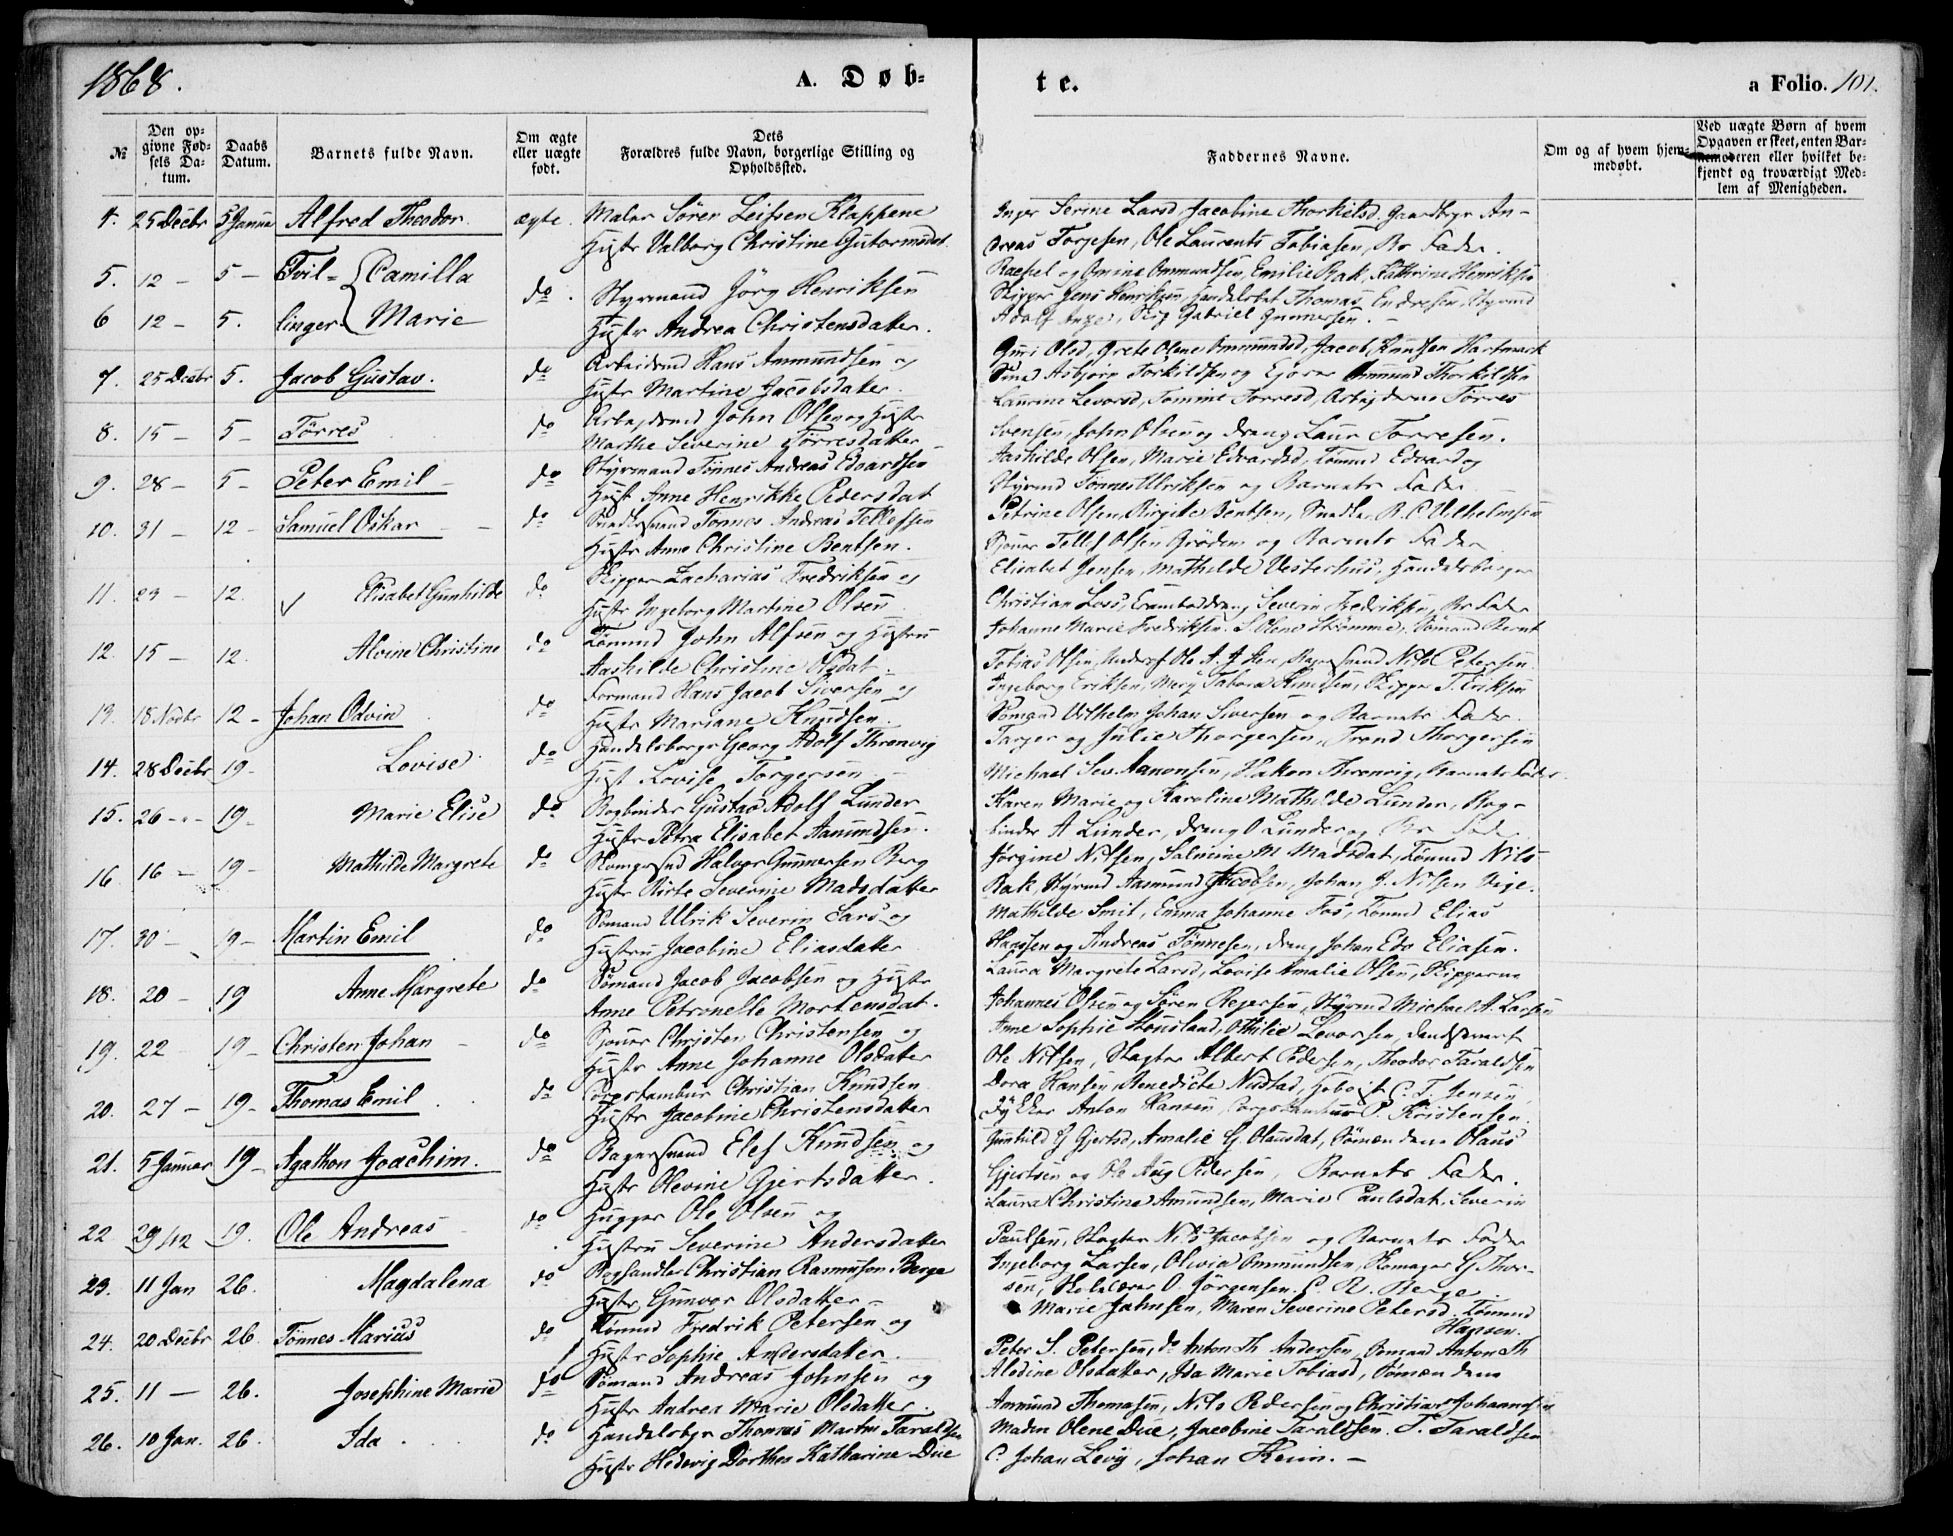 1868.
A. Døb=
te.
a Folio. 101.
№
Den op=
givne Fød=
sels Da=
tum.
Daabs
Datum.
Barnets fulde Navn.
Om ægte
eller uægte
født.
Dets
Forældres fulde Navn, borgerlige Stilling og
Opholdssted.
Faddernes Navne.
Om og af hvem hjem=
medøbt.
Ved uægte Børn af hvem
Opgaven er skeet, enten Bar=
nemoderen eller hvilket be=
kjendt og troværdigt Med=
lem af Menigheden.
4. 25 Decbr 5 Janua Alfred Theodor ægte. Maler Sören Leifsen Klappene
Hustr Valborg Christine Gutormsdat
Inger Serine Larsd Jacobine Thorkilsd Gaardbgr An-
dreas Torjesen, Ole Laurents Tobiasen, Br Fader.
5. 12 - 5 - Tvil- Camilla
6 12 - 5. linger Marie
do. Styrmand Jörg Henriksen
Hustr Andrea Christensdatter.
Rachel og Omine Ommundsen, Emilie Bak, Kathrine Henriksen
Skipper Jens Henriksen, Handelsbet Thomas Endresen, Styrmd
Adolf Gabriel Gunnersen. -
7. 25 Decbr 5. Jacob Gustav. do Arbeidsmd Hans Ammundsen og
Hustr Martine Jacobsdatter.
Guri Olsd, Grete Olene Ommundsd, Jacob Knudsen Hartmark
Asbjörn Torkildsen og Ejerer Ommund Thorkildsen
8. 15 - 5 - Törres do Arbejdsmd John Olsen og Hustr
Marthe Severine Törresdatter
Laurine Levorsd, Tomine Torresd, Arbejderne Törres
Svensen, John Olsen og Dreng Laur Torresen.
9. 28 - 5 - Peter Emil - do Styrmand Tönnes Andreas Edvardsen
Hust Anne Henrikke Pedersdat
Aashilde Olsen, Marie Edvardsd, Tömmd Edvard og
Styrmd Tönnes Ulriksen og Barnets Fader
10. 31 - 12 - Samuel Oskar - - do Tönnes Andreas Tellefsen
Hustr Anne Christine Bentsen.
Petrine Olsen, Birgitte Bentsen, R. C. Vilhelmsen
Sjouer Tellef Olsen Grödem og Barnets Fader
11. 23 - 12. Elisabet Gunhilde do Skipper Zacharias Fredriksen og
Hustr Ingeborg Martine Olsen
Elisabet Jensen, Mathilde Vesterhus, Handelsborger
Christian Severin Fredriksen, Br Fader
12. 15 - 12. Alvine Christine do Tömmd John Alfsen og Hustru
Aashilde Christine Olsdat.
Johanne Marie Fredriksen. S. Olene Strömme, Sömand Bernt
Tobias Olsen, Ole A. Nils Petersen.
13. 18 Novbr 12 - Johan Odvin do Formand Hans Jacob Siversen og
Hustr Mariane Knudsen.
Ingeborg Eriksen, Knudsen, Skipper T. Eriksen
Sömand Vilhelm Johan Siversen og Barnets Fader.
14. 28 Decbr 19 - Lovise do Handelsborger Georg Adolf Thronvig
Hust Lovise Torgersen -
Targer og Julie Thorgersen, Trond Thorgersen
Michael Aanonsen, Hakon Thronvig, Barnets Fader
15. 26 - - 19 - Marie Elise do Bogbinder Gustav Adolf Lunder
Hustr Petra Elisabet Aanundsen.
Karen Marie og Karoline Mathilde Lunder, Bog-
binder A Lunder, Dreng O Lunder og Br Fader
16 16 - 19 - Mathilde Margrete do Halvor Gunnersen Berg
Hustr Birte Severine Madsdatter
Jörgine Nilsen, Salmine M Madsdat, Tömmd Nils
Bak, Styrmd Aasmund Jacobsen, Johan J. Nilsen Vige.
17. 30 - 19 - Martin Emil do Sömand Ulrik Severin Lars og
Hustru Jacobine Eliasdatter
Mathilde Smit, Emma Johanne Fos, Tömmd Elias
Hansen og Andreas Tönnesen, Dreng Johan Edv Eliasen.
18. 20 - 19 Anne Margrete do Sömand Jacob Jacobsen og Hustr
Anne Petronelle Mortensdat.
Laura Margrete Larsd, Lovise Amalie Olsen, Skipperne
Johannes Olsen og Sören Rejersen, Styrmd Michael A. Larsen
19. 22 19 - Christen Johan - do Sjouer Christen Christensen og
Hustr Anne Johanne Olsdatter
Anne Sophie Stousland, Othilie Levorsen,
Ole Nilsen, Slagter Albert Pedersen, Theodor Taraldsen
20. 27 - 19 - Thomas Emil do Corpstambur Christian Knudsen
Hustr Jacobine Christensdatter
Dora Hansen, Benedicte Nustad, C. T. Jensen,
Anton Hansen, Corpstambur P. Kristensen.
21. 5 Januar 19 - Agathon Joachim. do Bagersvend Elef Knudsen og
Hustr Olevine Gjertsdatter.
Gunhild G Gjertsd, Amalie G. Olausdat, Sömændene Olaus
Gjertsen og Ole Aug Pedersen, Barnets Fader.
22 29/12 19. Ole Andreas do Hugger Ole Olsen og
Hustru Severine Andersdatter
Laura Christine Amundsen, Marie Paulsdat, Severin
Paulsen, Slagter Nils Jacobsen og Barnets Fader
23. 11 Jan 26. Magdalena do Christian Rasmuson Berge
Hustr Gunvor Olsdatter -
Ingeborg Larsen, Olivia Ommundsen, G Thor-
sen, Skolelærer O. Jörgensen. C. R. Berge
24. 20 Decbr 26. Tönnes Marius do Tömmd Fredrik Petersen og
Hustr Sophie Andersdatter.
Marie Jahnsen, Maren Severine Petersd. Tömmd
Peter S. Petersen, do Anton Th Andersen, Sömand Anton Th
Hansen.
25. 11 - 26. Josephine Marie do Sömand Andreas Johnsen og
Hustr Andrea Marie Olsdatter.
Alvdine Olsdatter, Ida Marie Tobiasd, Sömændene
Ammund Thomasen, Nils Pedersen og Christian Johannesen
26. 10 Jan. 26. Ida. do Handelsbgr Thomas Martin Taraldsen
Hustr Hedevig Dorthea Katharina Due
Madm Olene Due, Jacobine Taraldsen. T. Taraldsen
C. Johan Levy, Johan Keim. -